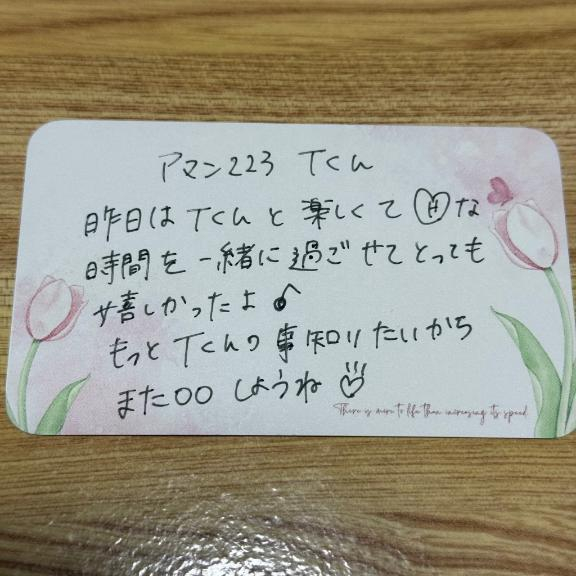 アマン223 Tくん
昨日はTくんと楽しくてHな
時間を一緒に過ごせてとっても
嬉しかったよ♪
もっとTくんの事知りたいから
また〇〇しようね♡
There is more to life than increasing its speed.